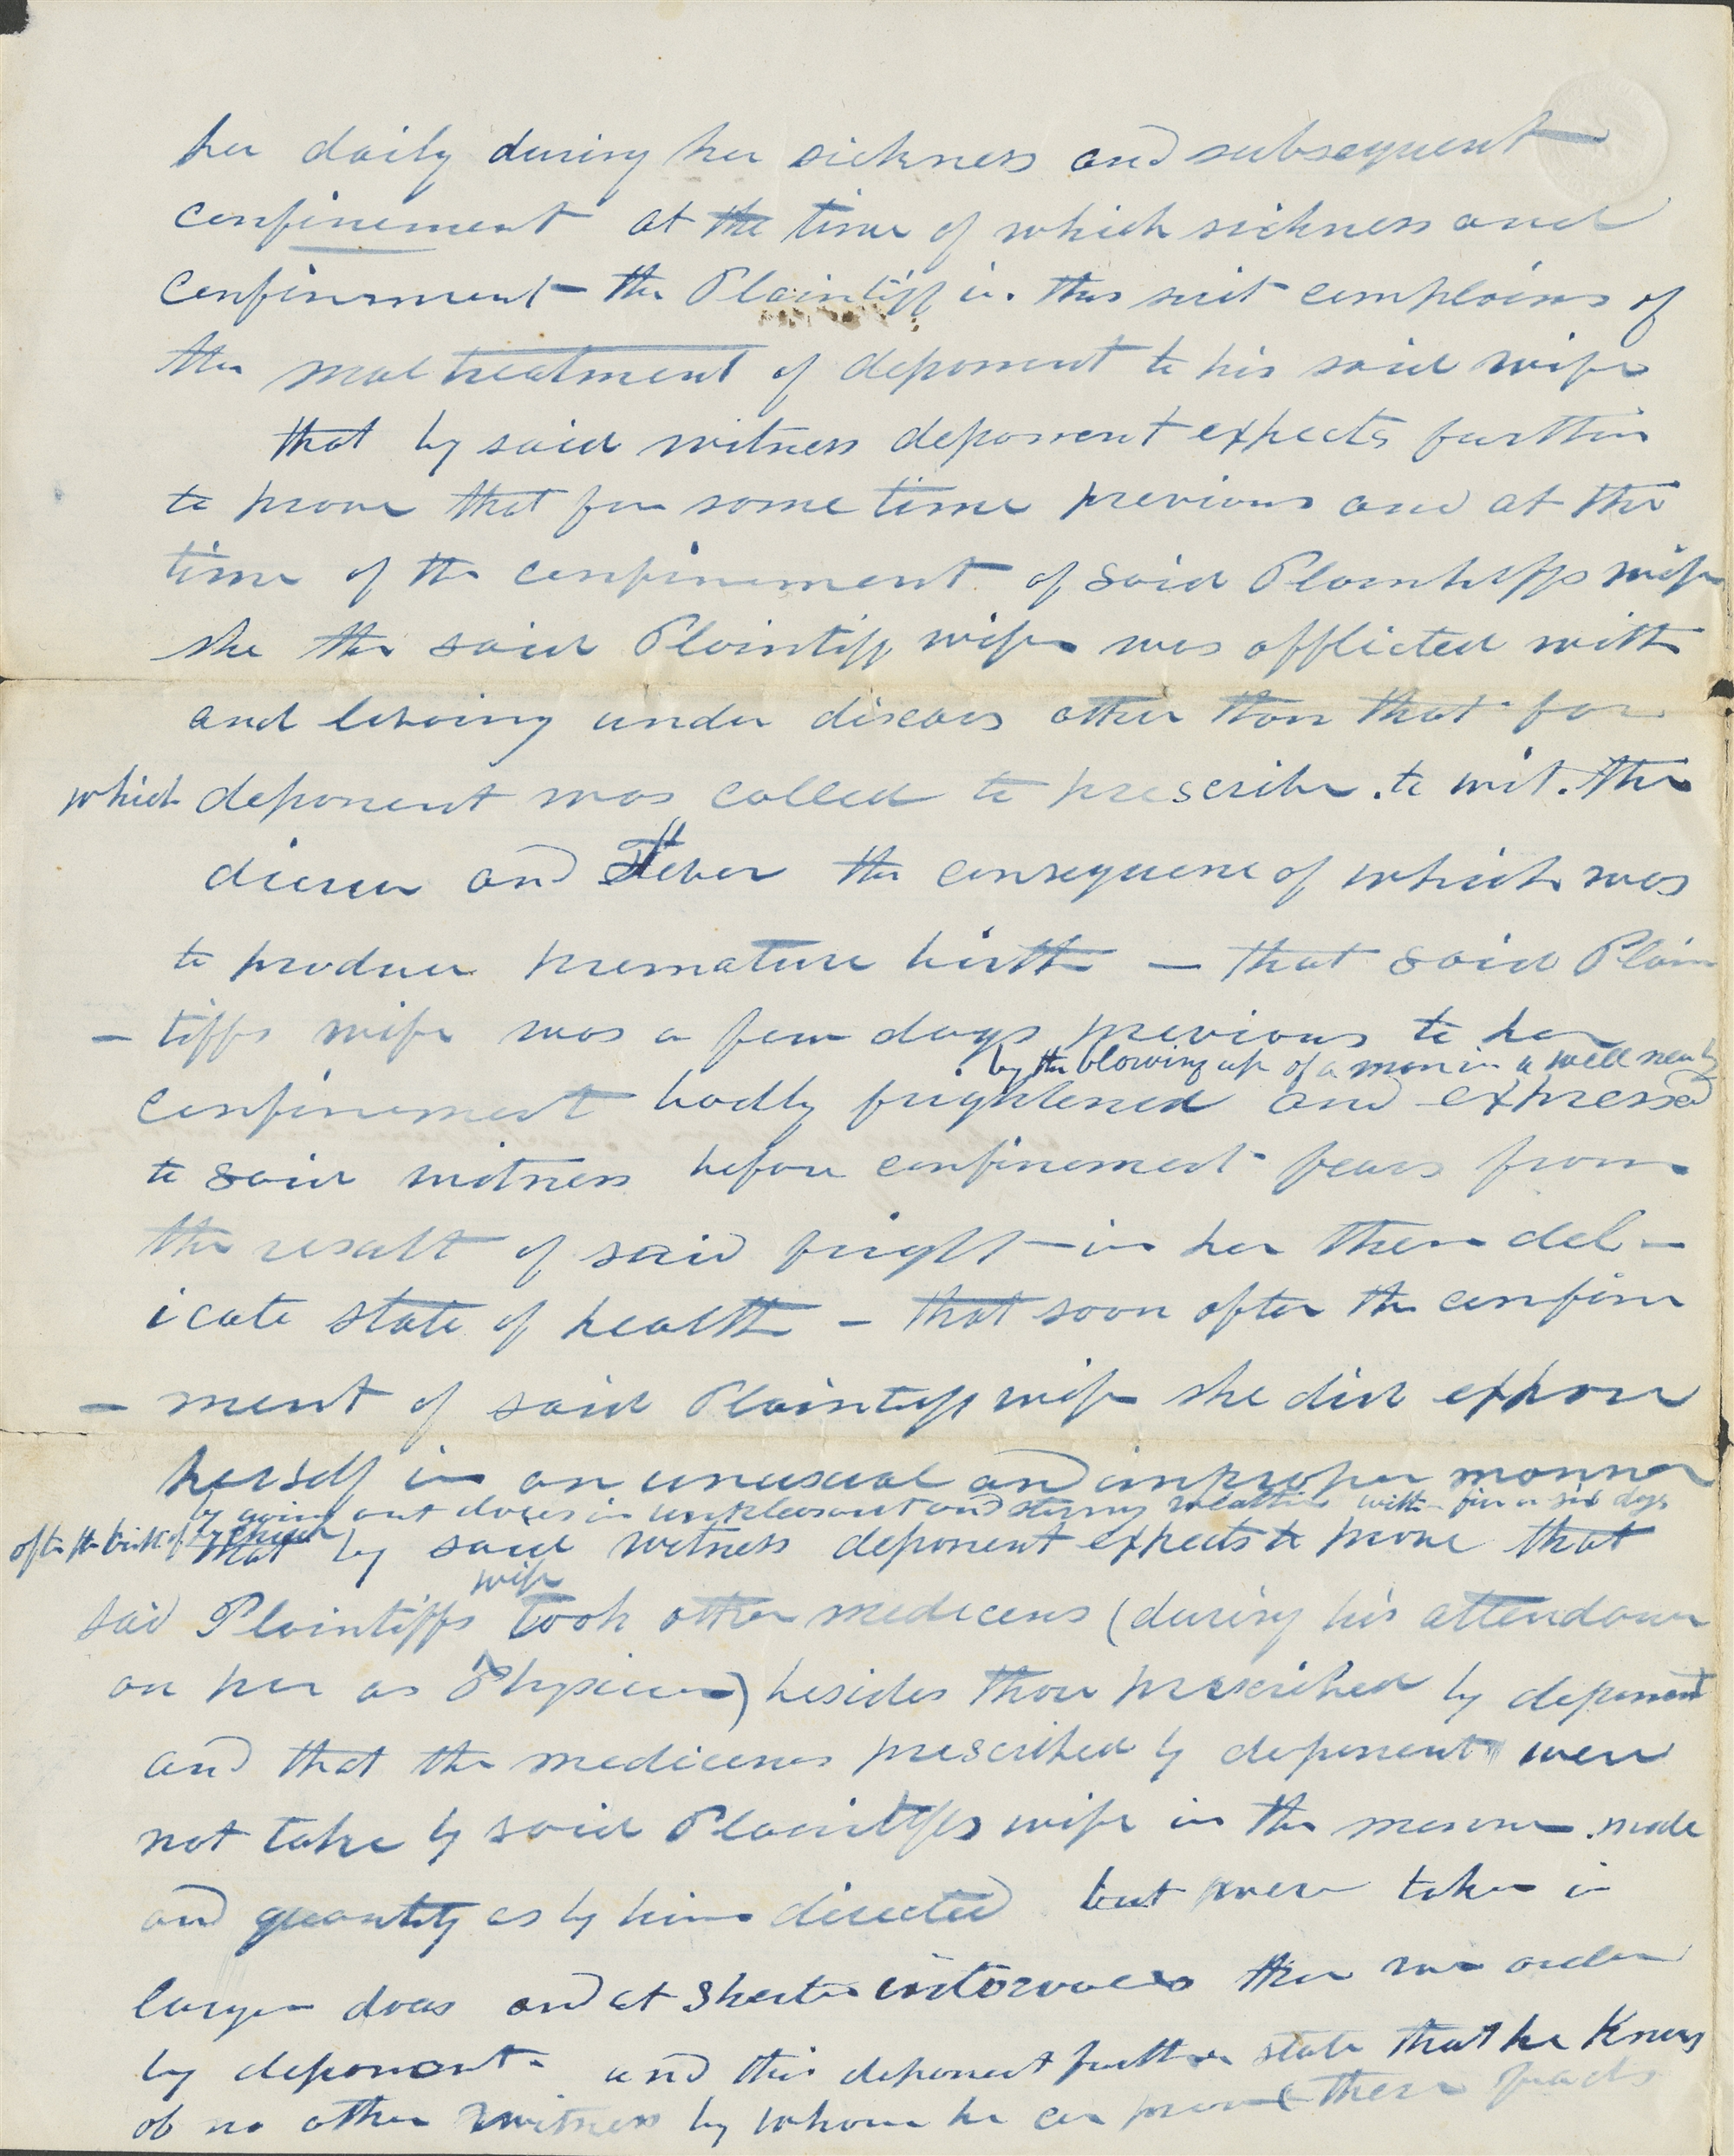 her daily during her sickness and subsequent
confinement at the time of which sickness and
confinement the Plaintiff in this suit complains of
the mal treatment of deponent to his said wife
that by said witness deponent expects further
to prove that for some time previous and at the
time of the confinement of said Plaintiffs wife
she the said Plaintiff wife was afflicted with
and under diseases other than that for
which deponent was called to prescribe. to wit. the
and Fever the consequence of which was
to produce premature birth — that said Plain
- tiffs wife was a few days previous to her
by the blowing up of a man in a well near by
confinement badly frightened and expressed
to said witness before confinement fears from
the result of said fright in her then del-
icate state of health — that soon after the confine
- ment of said Plaintiff wife she did expose
herself in an unusual and improper manner
by going out doors in unpleasant and stormy weather within five or six days
after the birth of by said witness deponent expects to prove that
wife
said Plaintiffs took other medicens (during his attendance
on her as Physician) besides those prescribed by deponent
and that the medicenes prescribed by deponent were
not take by said Plaintiffs wife in the manner mode
and quantity as by him directed but were taken in
larger doses and at shorter intervales than was order
by deponent and this deponent further state that he knows
of no other witness by whom he can prove these facts